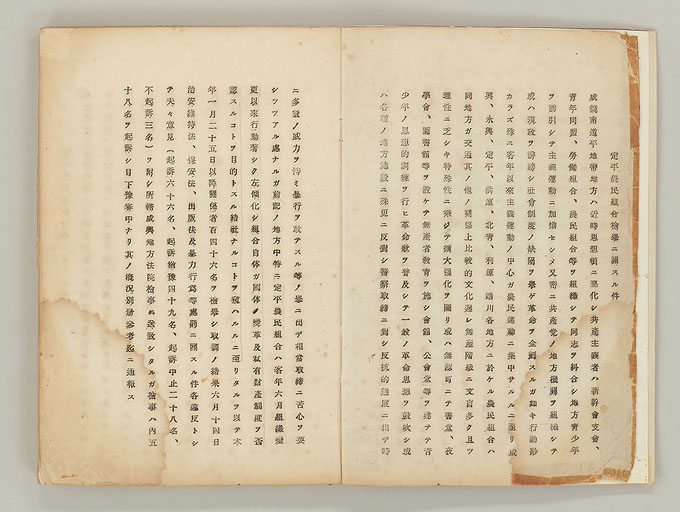 定平農民組合檢擧ニ關スル件
咸鏡南道平地帶地方ハ近時思想頓ニ惡化シ共産主義者ハ新幹會支會、
靑年同盟、勞働組合、農民組合等ヲ組織シテ同志ヲ糾合シ地方靑少年
ヲ誘引シテ主義運動ニ加擔セシメ又密ニ共産黨ノ地方機關ヲ組織シテ
或ハ現政ヲ誹謗シ社會制度ノ缺陷ヲ擧ゲ革命ヲ企圖スルガ如キ行動尠
カラズ殊ニ客年以來主義運動ノ中心ガ農民運動ニ集中サルルニ至リ咸
興、永興、定平、洪原、北靑、利原、端川各地方ニ於ケル農民組合ハ
同地方ガ交通其ノ他ノ關係上比較的文化遲レ無産階級ニ文盲多ク且ツ
理性ニ乏シキ特殊性ニ乘ジテ擴大强化ヲ圖リ或ハ無認可ニテ書堂、夜
學會、圖書館等ヲ設ケテ無産者敎育ヲ施シ會館、公會堂等ヲ建テテ靑
少年ノ思想的訓練ヲ行ヒ革命歌ヲ普及シテ一般ノ革命思想ヲ鼓吹シ或
ハ各種ノ地方施設ニ殊更ニ反對シ警察取締ニ對シ反抗的態度ニ出デ時
ニ多數ノ威力ヲ恃ミ暴行ヲ敢テスル等ノ擧ニ出デ相當取締ニ苦心ヲ要
シツツアル處ナルガ前記ノ地方中特ニ定平農民組合ハ客年六月組織變
更以來行動著シク左傾化シ組合自體ガ國體ノ變革及私有財産制度ヲ否
認スルコトヲ目的トスル結社ナルコトヲ窺ハルルニ至リタルヲ以テ本
年一月二十五日以降關係者百四十六名ヲ檢擧シ取調ノ結果六月十四日
治安維持法、保安法、出版法及暴力行爲等處罰ニ關スル件各違反トシ
テ夫々意見(起訴六十六名、起訴猶豫四十九名、起訴中止二十八名、
不起訴三名)ヲ附シ所轄咸興地方法院檢事ニ送致シタルガ檢事ハ內五
十八名ヲ起訴シ目下豫審中ナリ其ノ槪況別冊參考迄ニ通報ス